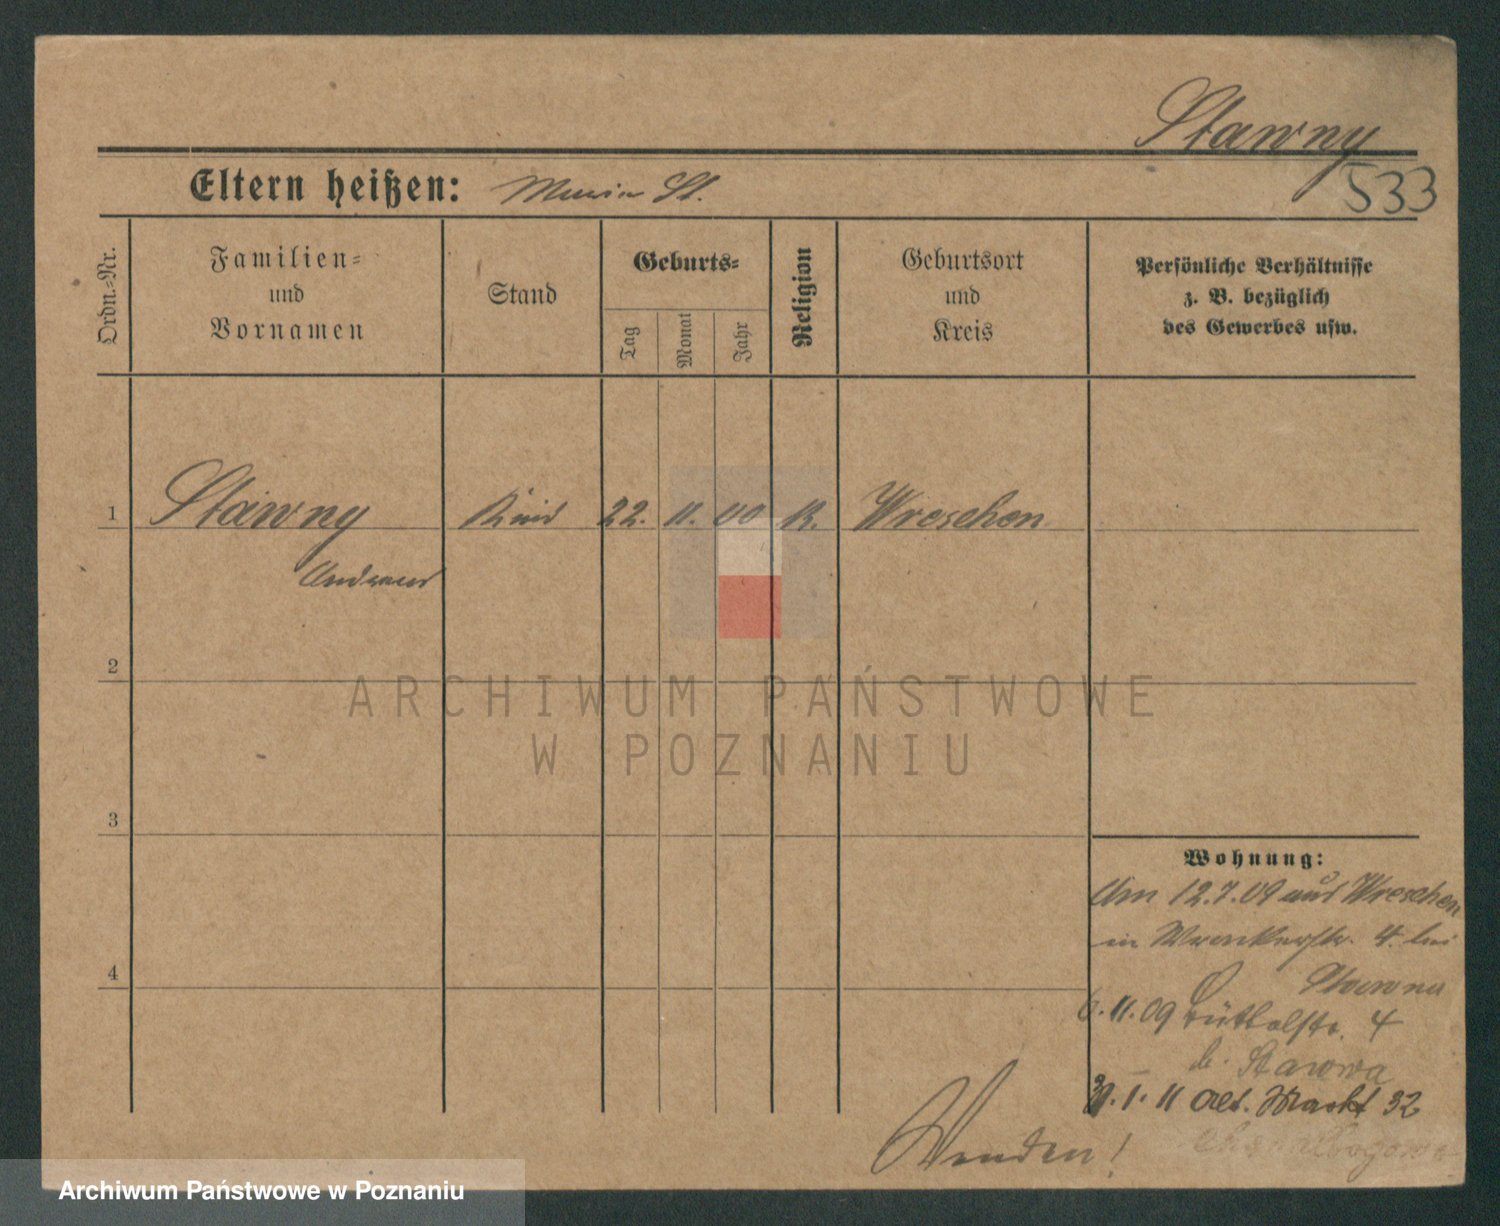 Stawny
533
Eltern heißen: Maria St.
Ordn.-Nr.
Familien-
und
Vornamen
Stand
Geburts-
Tag
Monat
Jahr
Religion
Geburtsort
und
Kreis
Persönliche Verhältnisse
z. B. bezüglich
des Gewerbes usw.
1 Stawny Kind 22. 11. 00 K. Wreschen
Andreas
2
ARCHIWUM PAŃSTWOWE
W POZNANIU
3
Wohnung:
Am 12.7.09 aus Wreschen
in Wronkerstr. 4. bei
Stawna
4
6.11.09 4
b. Stawna
30.1.11 Alt. Markt 32
Wenden!
Archiwum Państwowe w Poznaniu